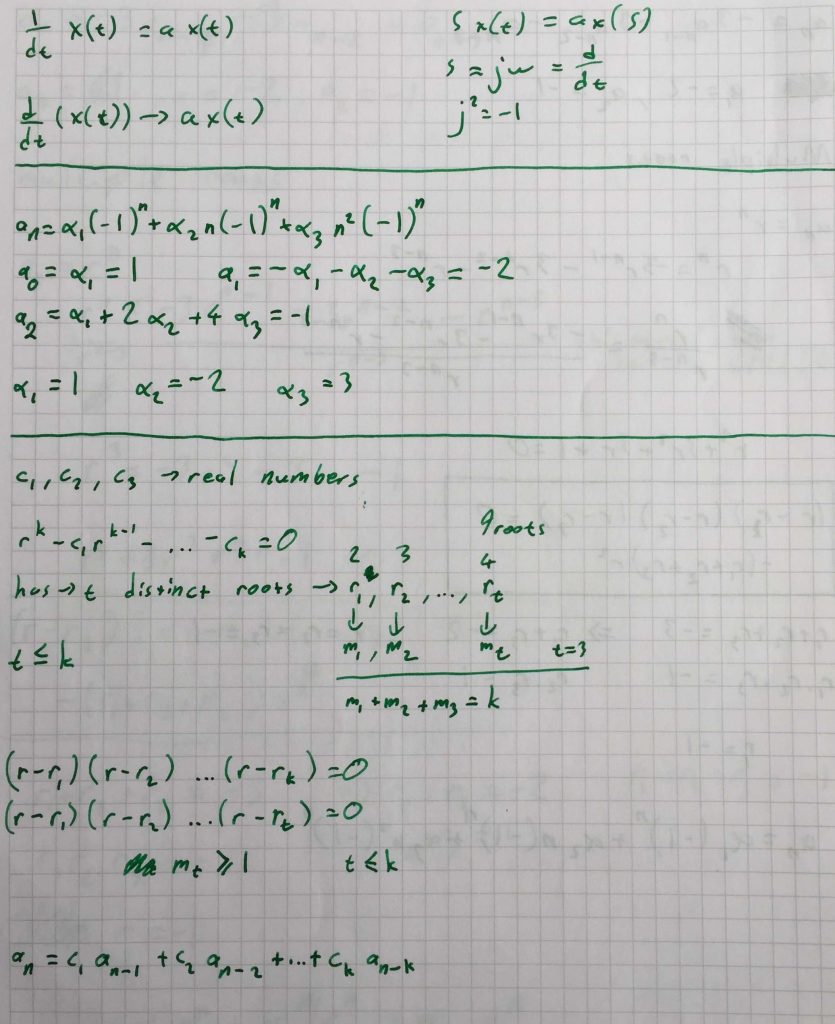 1/dt x(t) = a x(t)
d/dt (x(t)) → a x(t)
s x(t) = a x(s)
s = jω = d/dt
j² = -1
aₙ = α₁(-1)ⁿ + α₂ n(-1)ⁿ + α₃ n²(-1)ⁿ
a₀ = α₁ = 1 a₁ = -α₁ - α₂ - α₃ = -2
a₂ = α₁ + 2α₂ + 4α₃ = -1
α₁ = 1 α₂ = -2 α₃ = 3
c₁, c₂, c₃ → real numbers
9 roots
rᵏ - c₁rᵏ⁻¹ - ... - cₖ = 0
2 3 4
has → t distinct roots → r₁, r₂, ..., rₜ
↓ ↓ ↓
t ≤ k m₁, m₂ mₜ t=3
m₁ + m₂ + m₃ = k
(r-r₁)(r-r₂) ...(r-rₖ) = 0
(r-r₁)(r-r₂) ...(r-rₜ) = 0
mₜ ⩾ 1 t ≤ k
aₙ = c₁ aₙ₋₁ + c₂ aₙ₋₂ + ... + cₖ aₙ₋ₖ